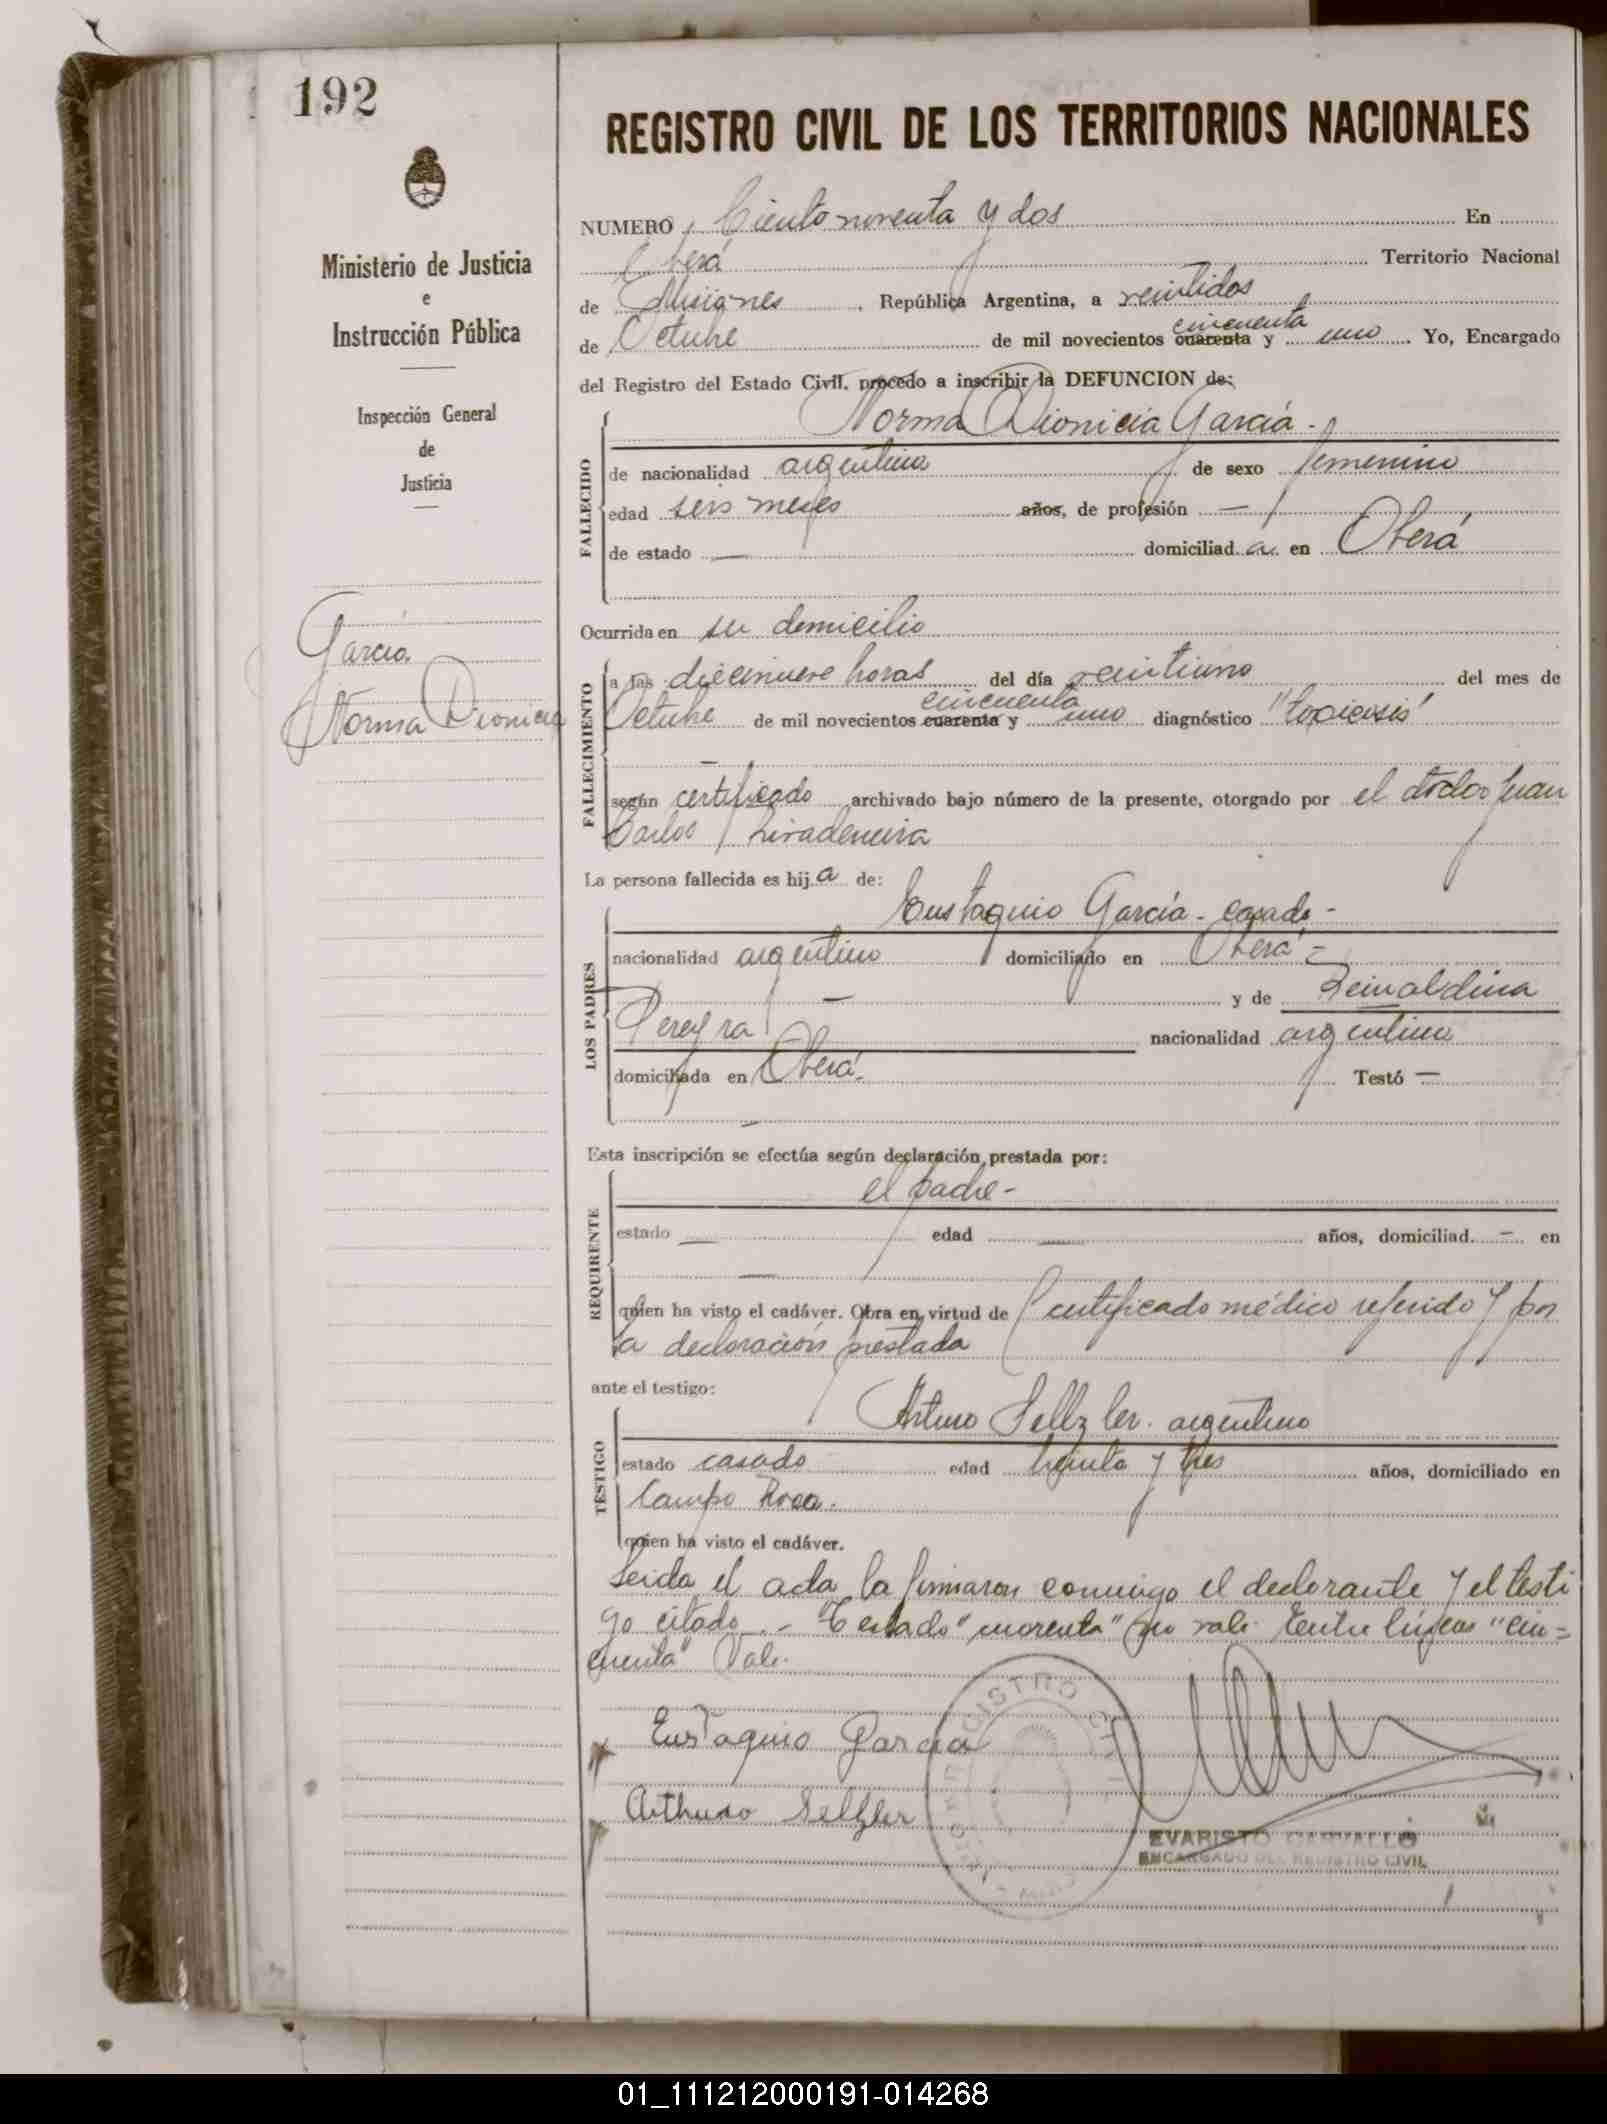 192
REGISTRO CIVIL DE LOS TERRITORIOS NACIONALES
Ministerio de Justicia
e
Instrucción Pública
Inspección General
de
Justicia
García
Norma Dionicia
NUMERO Ciento noventa y dos En
Oberá Territorio Nacional
de Misiones, República Argentina, a veintidos
cincuenta
de Octubre de mil novecientos cuarenta y uno. Yo, Encargado
del Registro del Estado Civil, procedo a inscribir la DEFUNCION de:
Norma Dionicia García -
FALLECIDO
de nacionalidad argentina de sexo femenino
edad seis meses años, de profesión —
de estado — domiciliad a en Oberá
Ocurrida en su domicilio
FALLECIMIENTO
a las diecinueve horas del día veintiuno del mes de
cincuenta
Octubre de mil novecientos cuarenta y uno diagnóstico "toxicosis"
—
según certificado archivado bajo número de la presente, otorgado por el doctor Juan
Carlos Rivadeneira
La persona fallecida es hij a de:
Eustaquio García - casado -
LOS PADRES
nacionalidad argentino domiciliado en Oberá -
— y de Reinaldina
Pereyra nacionalidad argentina
domiciliada en Oberá. Testó —
—
Esta inscripción se efectúa según declaración prestada por:
el padre -
REQUIRENTE
estado — edad — años, domiciliad — en
—
quien ha visto el cadáver. Obra en virtud de certificado médico referido y por
la declaración prestada
ante el testigo:
Arturo argentino
TESTIGO
estado casado edad treinta y tres años, domiciliado en
Campo Roca.
quien ha visto el cadáver.
Leída el acta la firmaron conmigo el declarante y el testi
go citado. - Testado "cuarenta" no vale. Entre líneas "cin=
cuenta" Vale.
Eustaquio García
REGISTRO CIVIL
EVARISTO CARVALLO
ENCARGADO DEL REGISTRO CIVIL
01_111212000191-014268